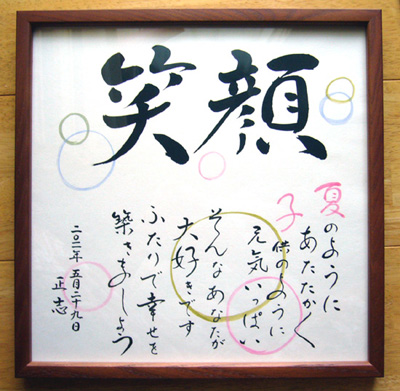 笑顔
夏のように
あたたかく
子供のように
元気いっぱい
そんなあなたが
大好きです
ふたりで幸せを
築きましょう
二〇一一年 五月二十九日
正志